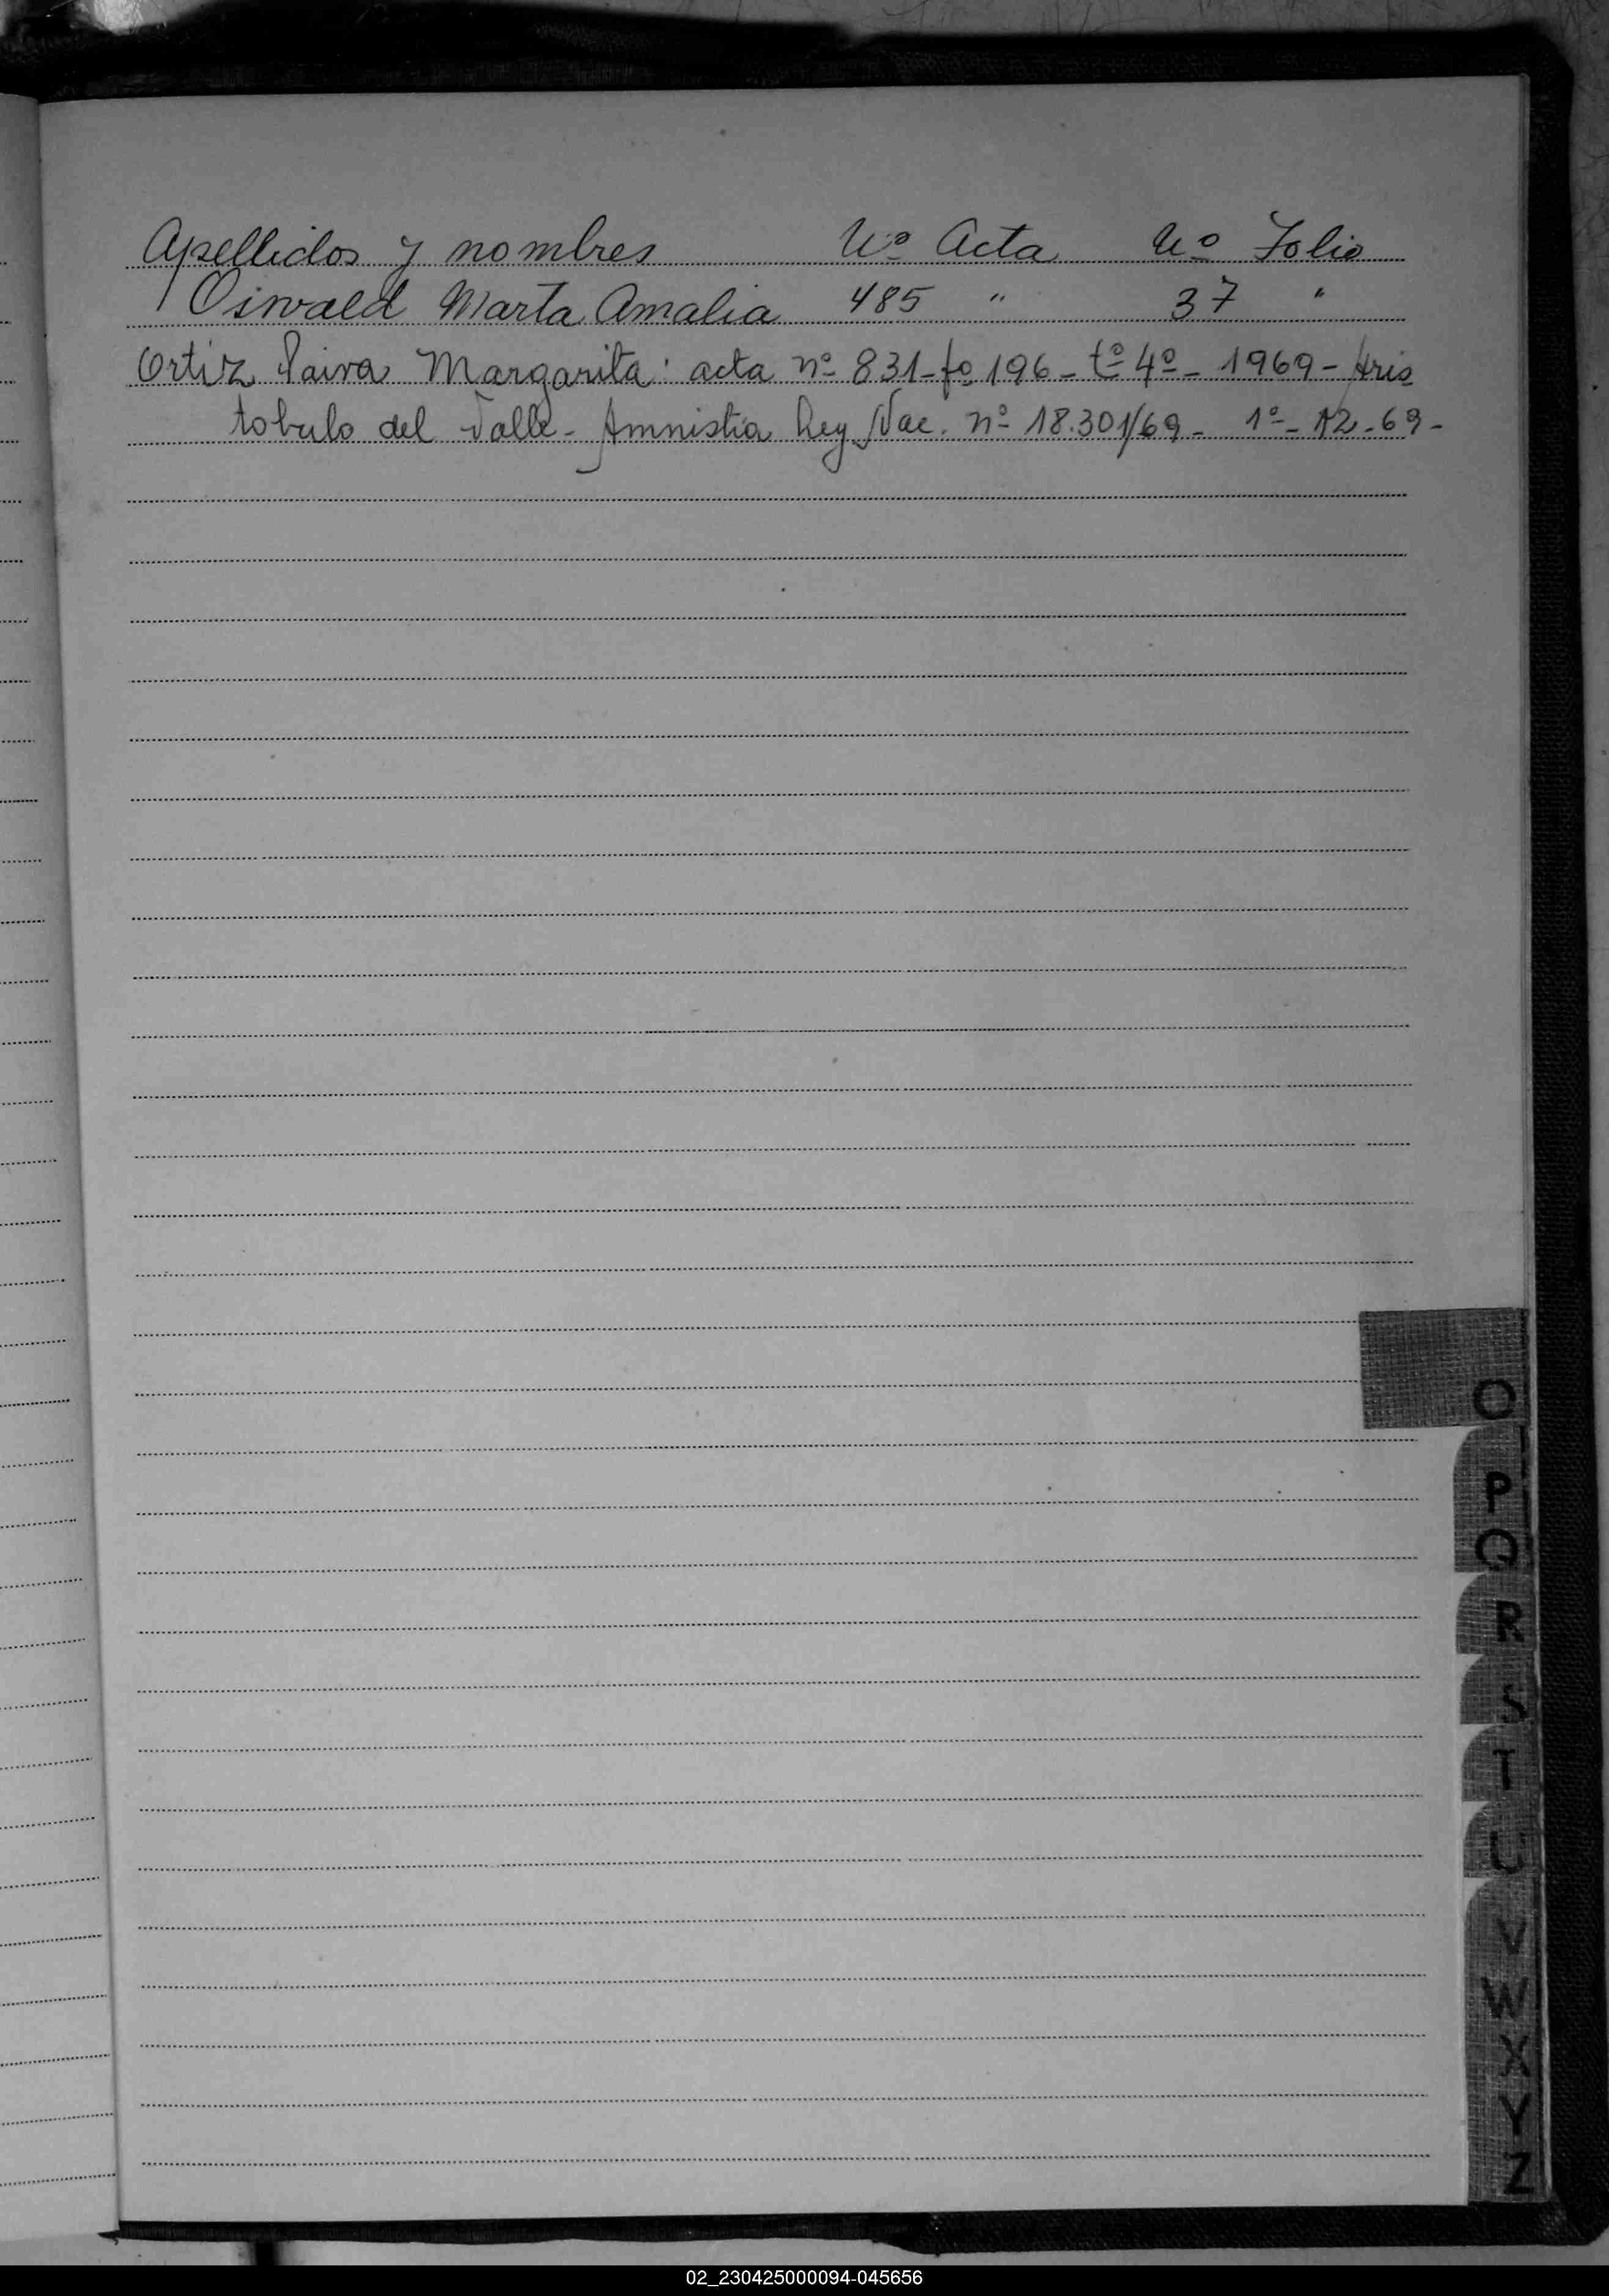 Apellidos y nombres Nº Acta Nº Folio
Oswald Marta Amalia 485 " 37 "
Ortiz Paiva Margarita: acta nº 831-fº 196- tº 4º- 1969- Aris
tobulo del Valle- Amnistia Ley Nac. nº 18.301/69- 1º- 12-69-
O
P
Q
R
S
T
U
V
W
X
Y
Z
02_230425000094-045656